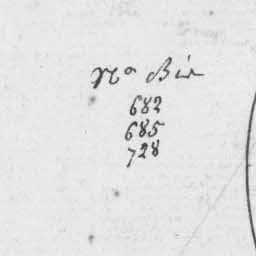 No Bis
682
685
728